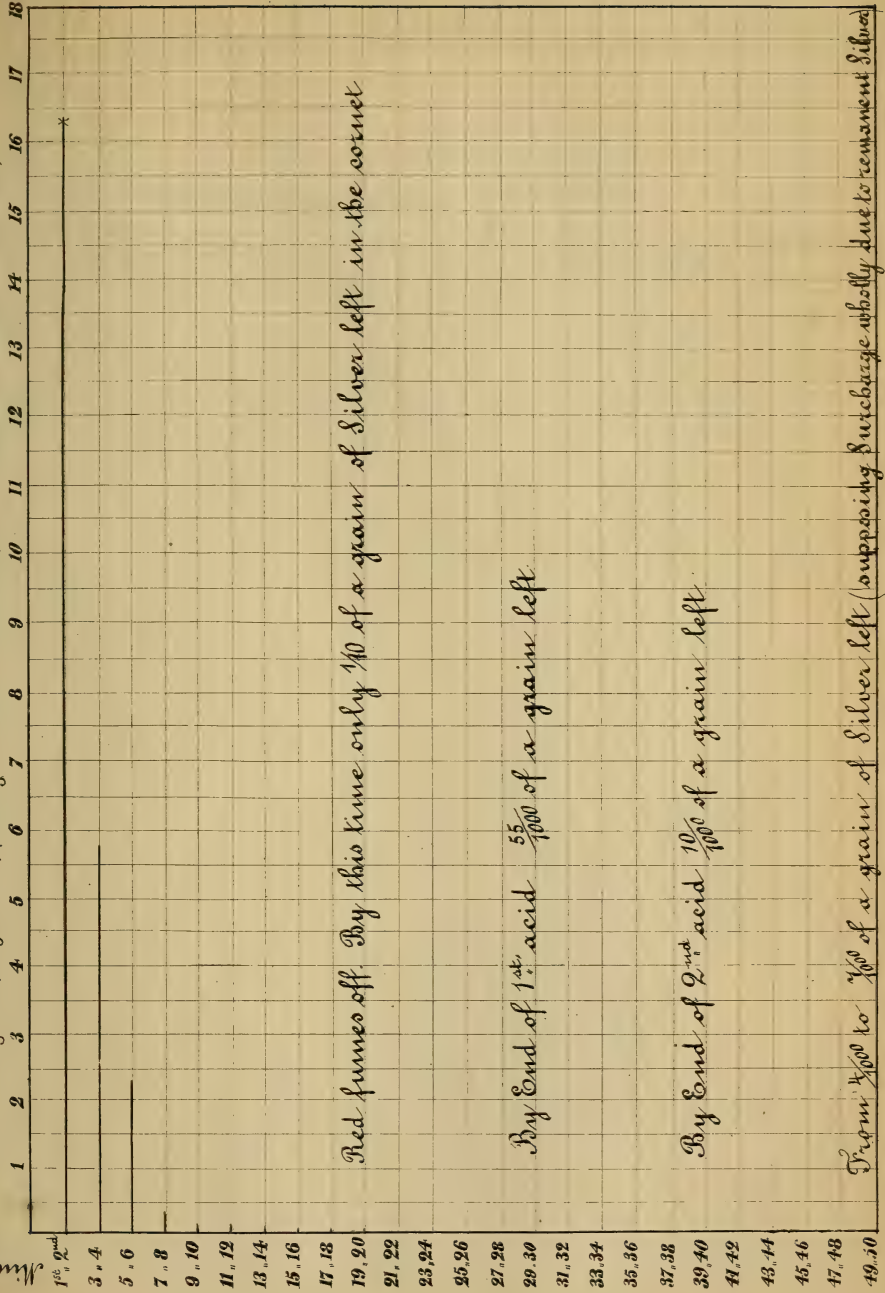 1 2 3 4 5 6 7 8 9 10 11 12 13 14 15 16 17 18
Min
1st „ 2nd
3 „ 4
5 „ 6
7 „ 8
9 „ 10
11 „ 12
13 „ 14
15 „ 16
17 „ 18
19 „ 20
21 „ 22
23 „ 24
25 „ 26
27 „ 28
29 „ 30
31 „ 32
33 „ 34
35 „ 36
37 „ 38
39 „ 40
41 „ 42
43 „ 44
45 „ 46
47 „ 48
49 „ 50
Red fumes off. By this time only 1/10 of a grain of Silver left in the cornet
By End of 1st. acid 55/1000 of a grain left
By End of 2nd acid 10/1000 of a grain left
From 4/1000 to of a grain of Silver left (supposing Surcharge wholly due to remanent Silver)